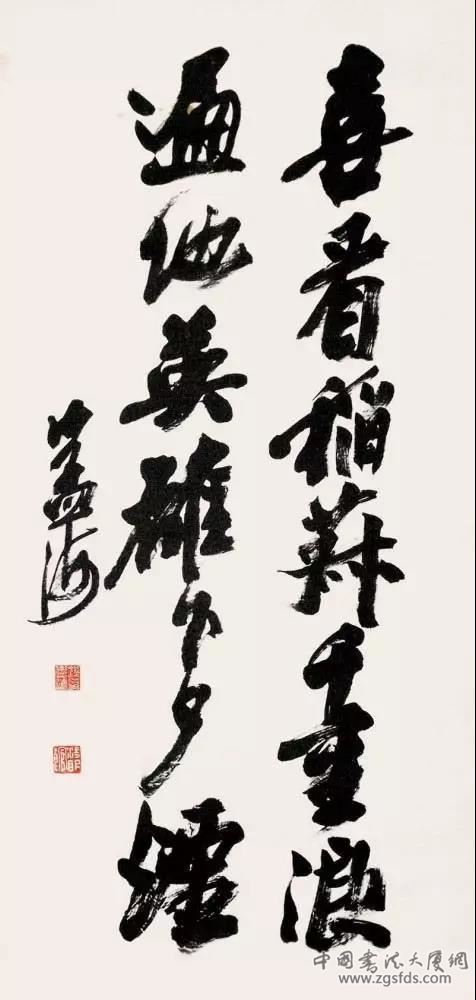 喜看稻菽千重浪
遍地英雄下夕煙
沙孟海
中國書法大厦網
www.zgsfds.com